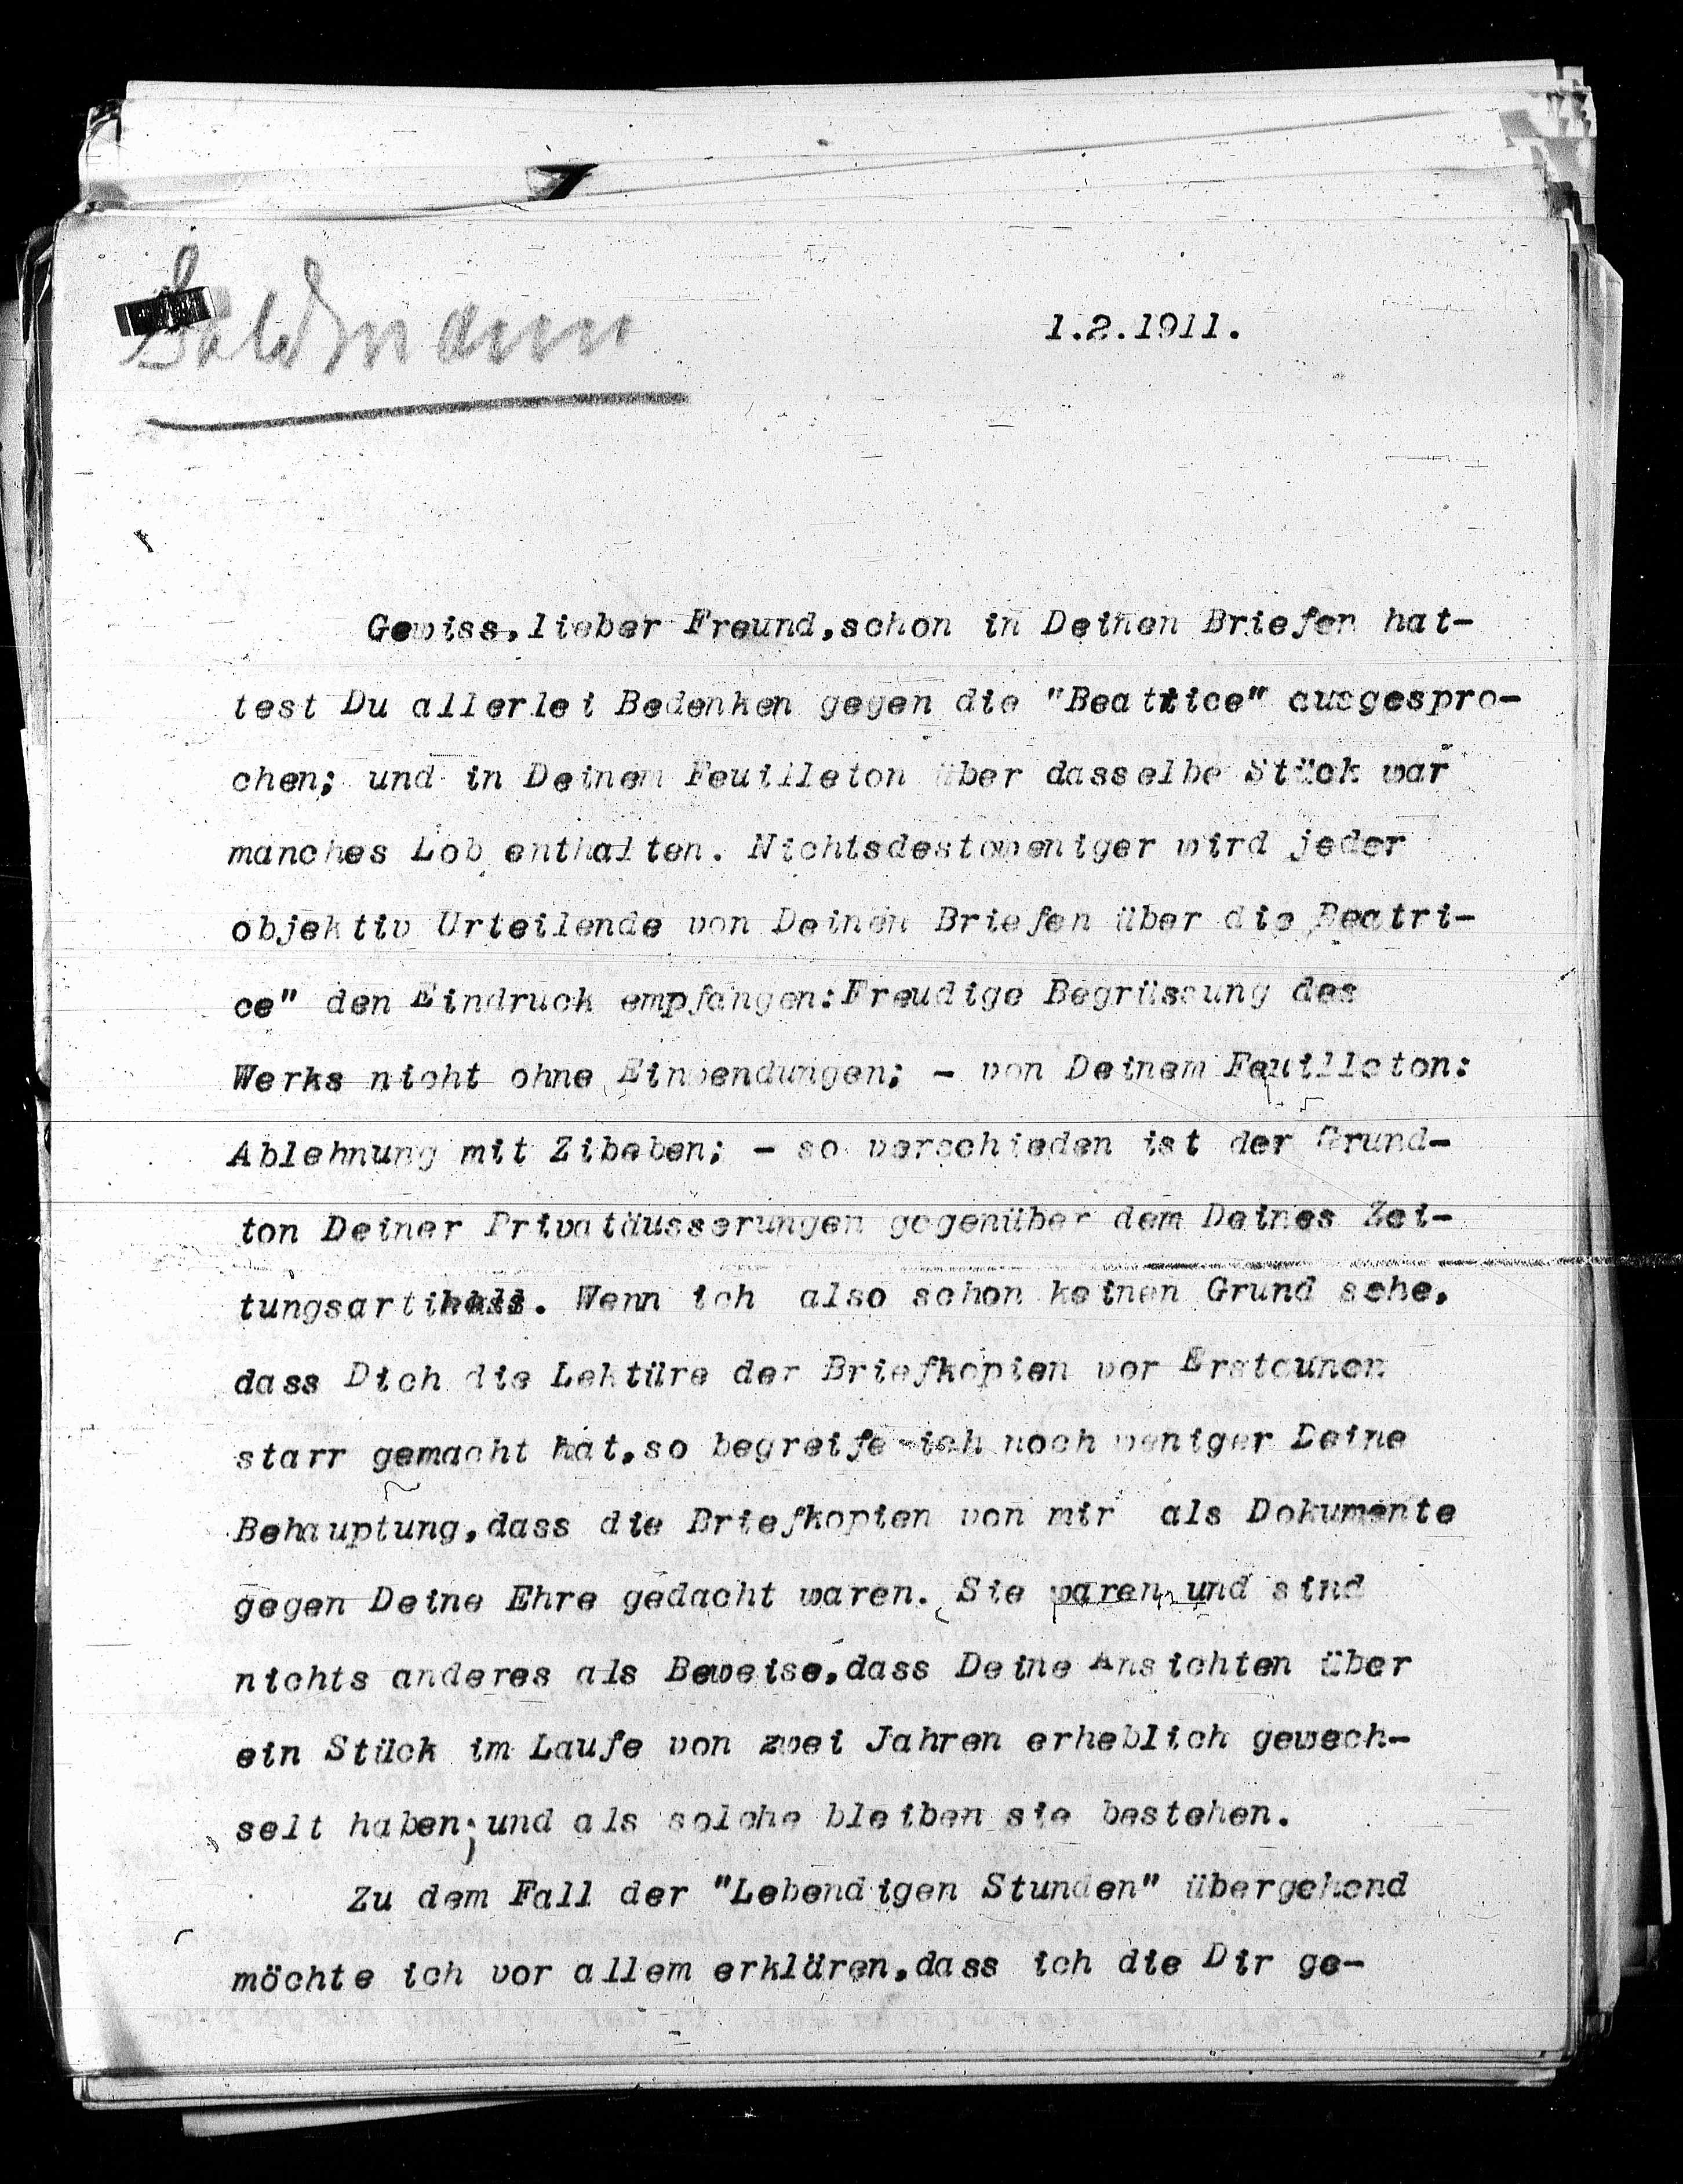 Goldmann
1.2.1911.
Gewiss, lieber Freund, schon in Deinen Briefen hat-
test Du allerlei Bedenken gegen die "Beatrice" ausgespro-
chen; und in Deinem Feuilleton über dasselbe Stück war
manches Lob enthalten. Nichtsdestoweniger wird jeder
objektiv Urteilende von Deinen Briefen über die Beatri-
ce" den Eindruck empfangen: Freudige Begrüssung des
Werks nicht ohne Einwendungen; - von Deinem Feuilleton:
Ablehnung mit Zibeben; - so verschieden ist der Grund-
ton Deiner Privatäusserungen gegenüber dem Deines Zei-
tungsartikels. Wenn ich also schon keinen Grund sehe,
dass Dich die Lektüre der Briefkopien vor Erstaunen
starr gemacht hat, so begreife ich noch weniger Deine
Behauptung, dass die Briefkopien von mir als Dokumente
gegen Deine Ehre gedacht waren. Sie waren und sind
nichts anderes als Beweise, dass Deine Ansichten über
ein Stück im Laufe von zwei Jahren erheblich gewech-
selt haben; und als solche bleiben sie bestehen.
Zu dem Fall der "Lebendigen Stunden" übergehend
möchte ich vor allem erklären, dass ich die Dir ge-